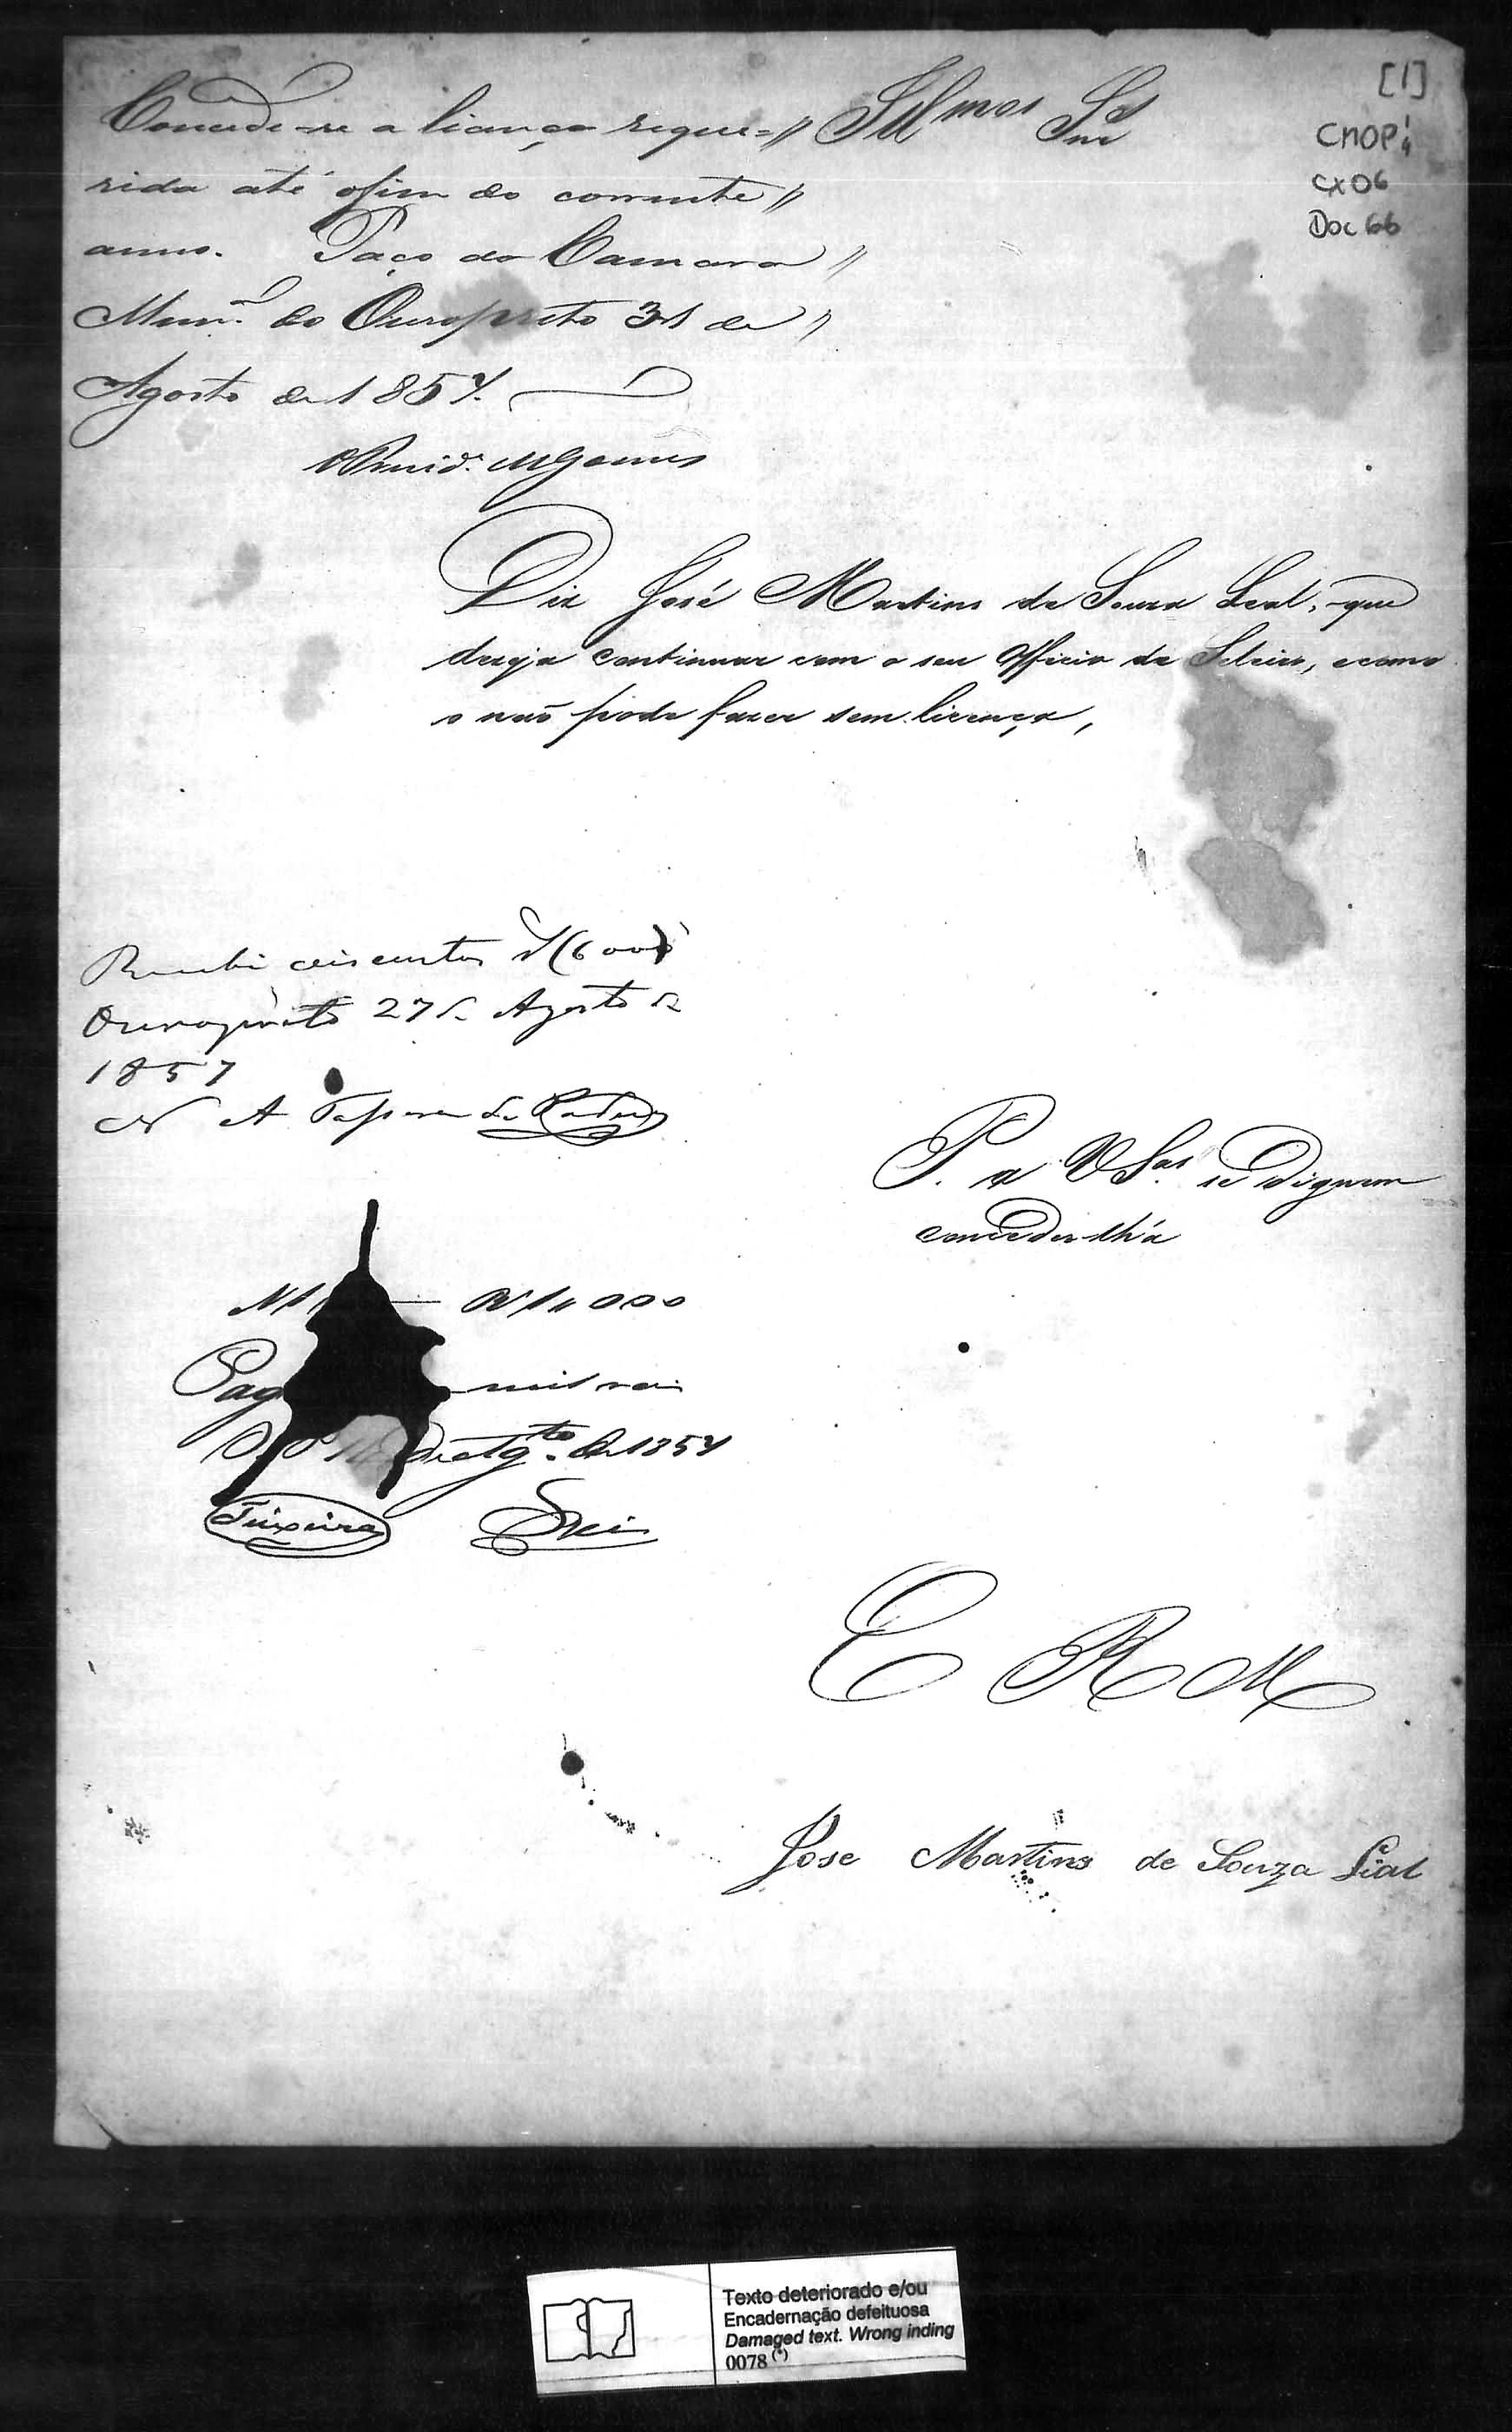 [1]
CMOP¹
Cx06
Doc 66
Illmos Snres
Concede-se a licença reque=//
rida até ofim do corrente //
anno. Paço da Camara //
Munal do Ouropreto 31 de //
Agosto de 1857.
O Presid. MGomes
Diz José Martins de Souza Leal, que
deseja continuar com o seu Officio de Seleiro, ecomo
o não pode fazer sem licença,
Recebi ceiscentos rs (600)
Ouropreto 27 de Agosto de
1857
N A
P. a V Sas se dignem
conceder lh'a
N 1 Rs 1,,000
Pag mil reis
O. Po de Agto de 1857
Teixeira
E R M
Jose Martins de Souza Lial
Texto deteriorado e/ou
Encadernação defeituosa
Damaged text. Wrong inding
0078 (*)